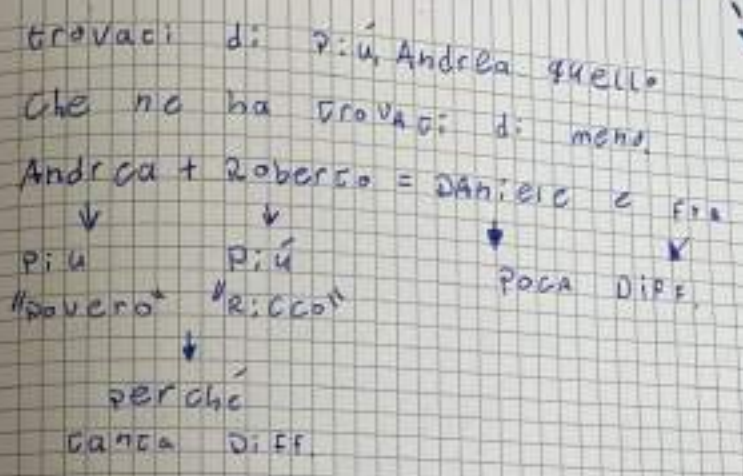 trovati di più, Andrea quello
che ne ha trovati di meno.
Andrea + Roberto = DAniele e FrA
↓ ↓ ↓ ↓
più più POCA DiFF.
"povero" "Ricco"
↓
perché
tanta DiFF.